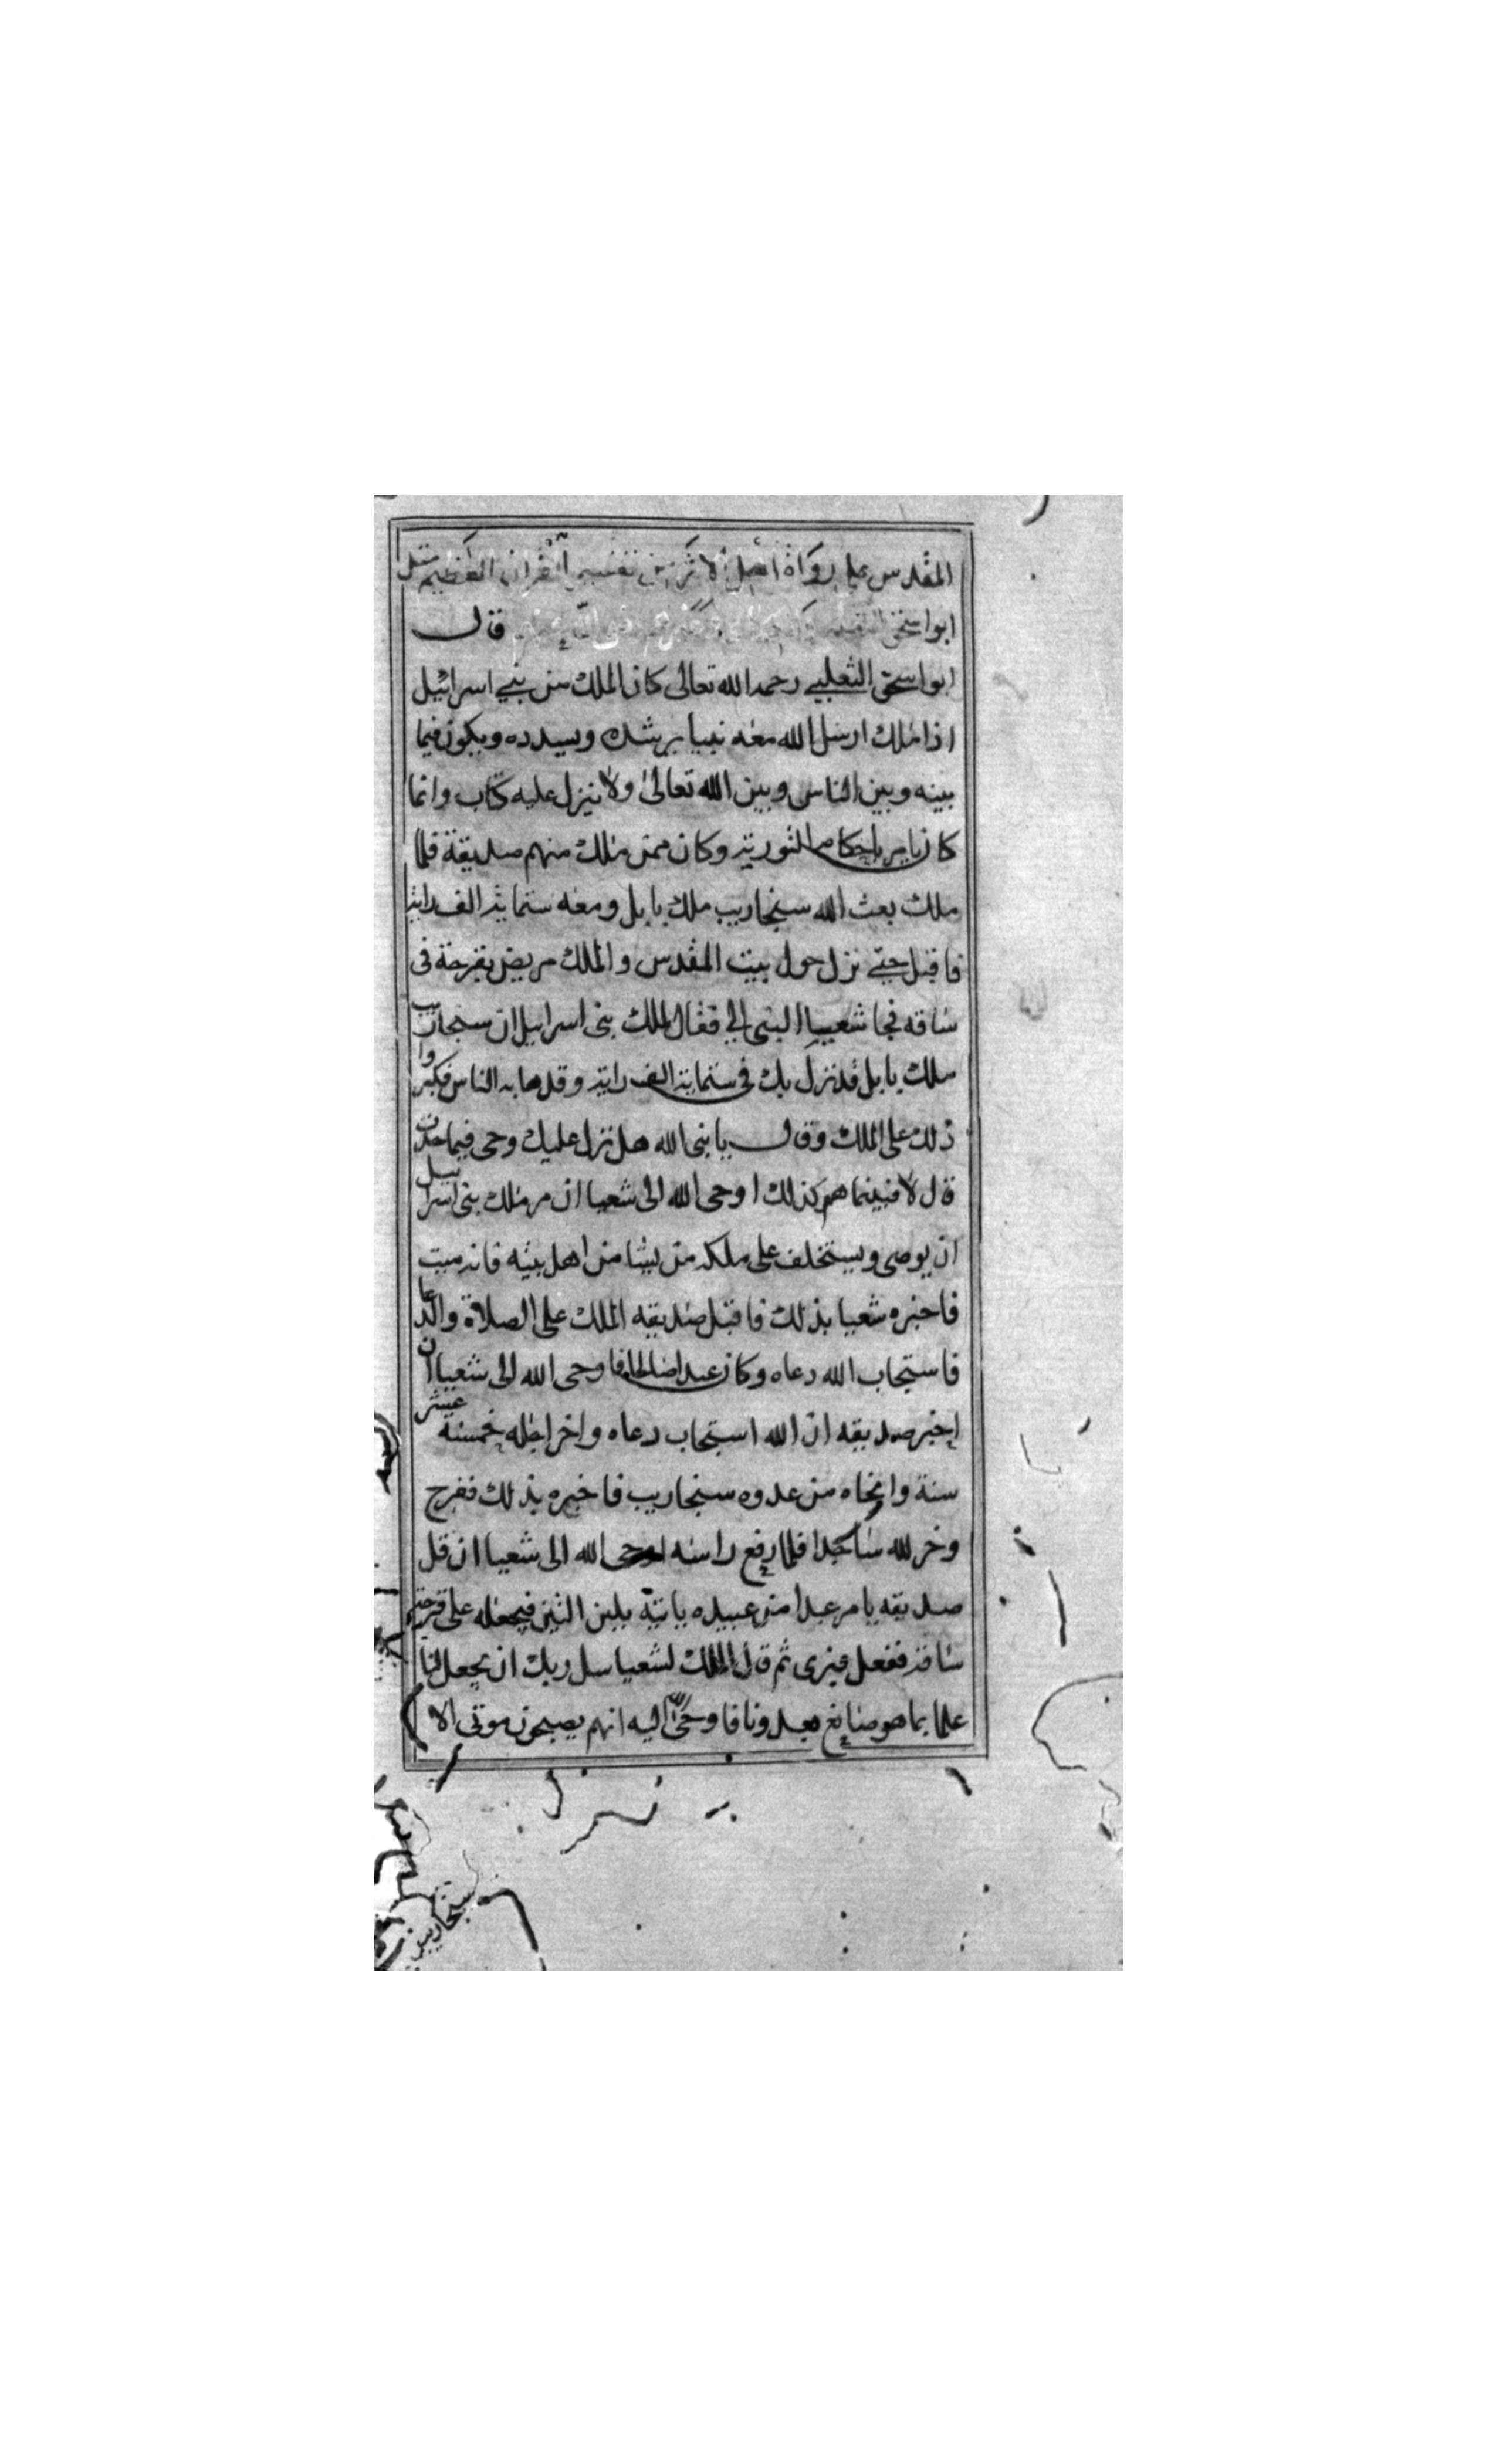 المقدس على رواة اهل الاثر من تفسير القران العظيم مثل
ابو اسحق قال
ابو اسحق الثعلبي رحمه الله تعالى كان الملك من بني اسرائيل
اذا ملك ارسل الله معه نبيا يرشده ويسدده ويكون فيما
بينه وبين الناس وبين الله تعالى ولا ينزل عليه كتاب وانما
كان يامر باحكام التورية وكان ممن ملك منهم صديقة فلما
ملك بعث الله سنجاريب ملك بابل ومعه ستماية الف راية
فاقبل حتى نزل حول بيت المقدس والملك مريض بقرحة في
ساقه فجا شعيا النبي الي فقال لملك بنى اسرايل ان سنجاريب
ملك بابل قد نزل بك في ستماية الف راية وقد هابه الناس فكبروا
ذلك على الملك وقال يا نبى الله هل نزل عليك وحى فيما حدث
قال لا فبينما هم كذلك اوحى الله الى شعيا ان مر ملك بنى اسراييل
ان يوصى ويستخلف على ملكه من يشا من اهل بيته فانه ميت
فاخبره شعيا بذلك فاقبل صديقه الملك على الصلاة والدعا
فاستجاب الله دعاه وكان عبدا صالحا فاوحى الله الى شعيا ان
اخبر صديقه ان الله استجاب دعاه واخر اجله خمسة عشر
سنة وانجاه من عدوه سنجاريب فاخبره بذلك ففرح
وخر لله ساجدا فلما رفع راسه اوحى الله الى شعيا ان قل
صديقه يامر عبدا من عبيده ياتيه بلبن التين فيجعله على قرحة
ساقه ففعل فبرى ثم قال الملك لشعيا سل ربك ان يجعل لنا
علما بما هو صانع بعدونا فاوحى الله اليه انهم يصبحون موتى الا
سنجاريب